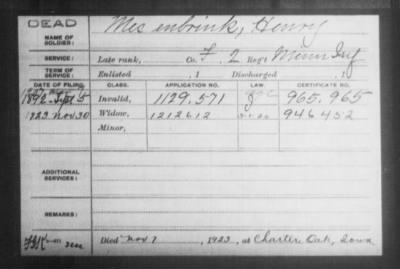 DEAD
NAME OF SOLDIER: Mesenbrink, Henry
SERVICE: Late rank, Co. F, 2 Reg't Minn Inf
TERM OF SERVICE: Enlisted , 1 Discharged , 1
DATE OF FILING. CLASS. APPLICATION NO. LAW. CERTIFICATE NO.
1892 Sept 5 Invalid, 1129.571 965.965
1923 Nov 30 Widow, 1212612 946452
Minor,
ADDITIONAL SERVICES:
REMARKS:
Died Nov 7, 1923, at Charter Oak, Iowa